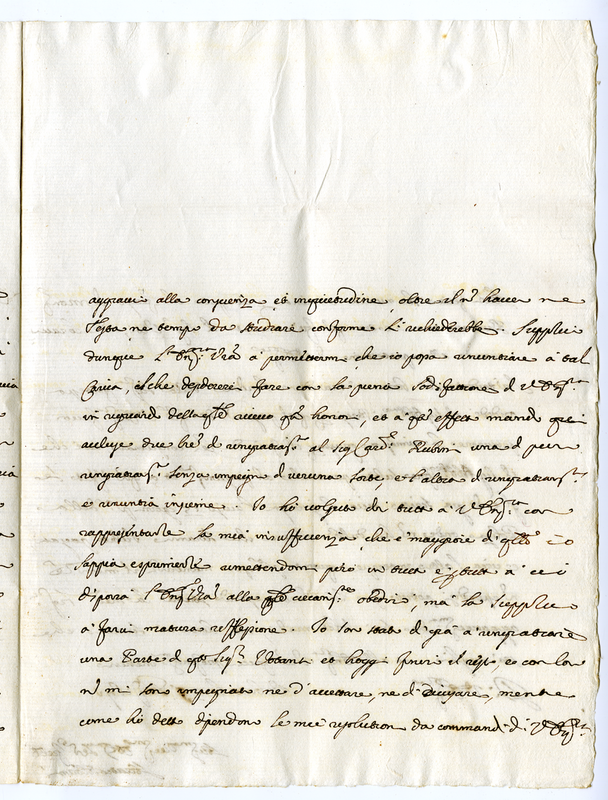 aggravi alla conscienza et inquietudine, oltre il nō haver ne
testa ne tempo da studiare conforme si richiederebbe. Supplico
dunque l'Em. Vrā a permettermi che io possa rinuntiare a tal
Carica, il che desidererei fare con la piena sodisfattione di V. Em.
in riguardo della qle ricevo qto honore, et a qto effetto mando qui
accluse due lre di ringratiam.to al Sig. Card. Rubini una di puro
ringratiam.to senza impegno di veruna sorte, e l'altra di ringratiam.to
e rinuntia insieme. Io hò voluto dir tutto a V. Em. con
rappresentarle la mia insufficienza che è maggiore di qllo io
sappia esprimerle rimettendomi però in tutto e per tutto a ciò
disporrà l'Em. Vrā alla qle ciecam.te obedirò, mà la supplico
a farvi matura reflessione. Io son stato di già a ringratiare
una Parte di qti Sig.ri Votanti et hoggi finirò il resto, e con loro
nō mi sono impegnato ne d'accettare, ne di ricusare, mentre
come hò detto dipendono le mie resolutioni da commandi di V. Em.